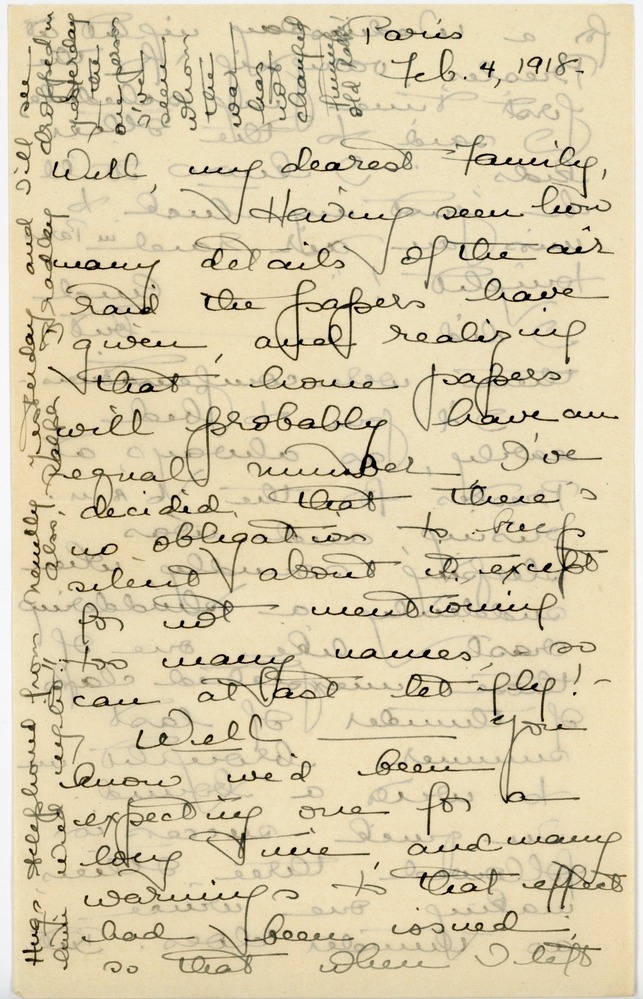 Paris
Feb. 4, 1918.
Well, my dearest Family,
Having seen how
many details of the air
raid the papers have
given, and realizing
that home papers
will probably have an
equal number I've
decided that there's
no obligation to keep
silent about it except
for not mentioning
too many names, so
can at last let fly! -
Well ——— you
know we'd been
expecting one for a
long time, and many
warnings to that effect
had been issued,
so that when I left
Hugs. telephoned from Neuilly yesterday and I'll see
him Wed. night!! Also, Ralph Bradley dropped in
yesterday
the
one person
I've
seen
whom
the
war
has
not
changed
old